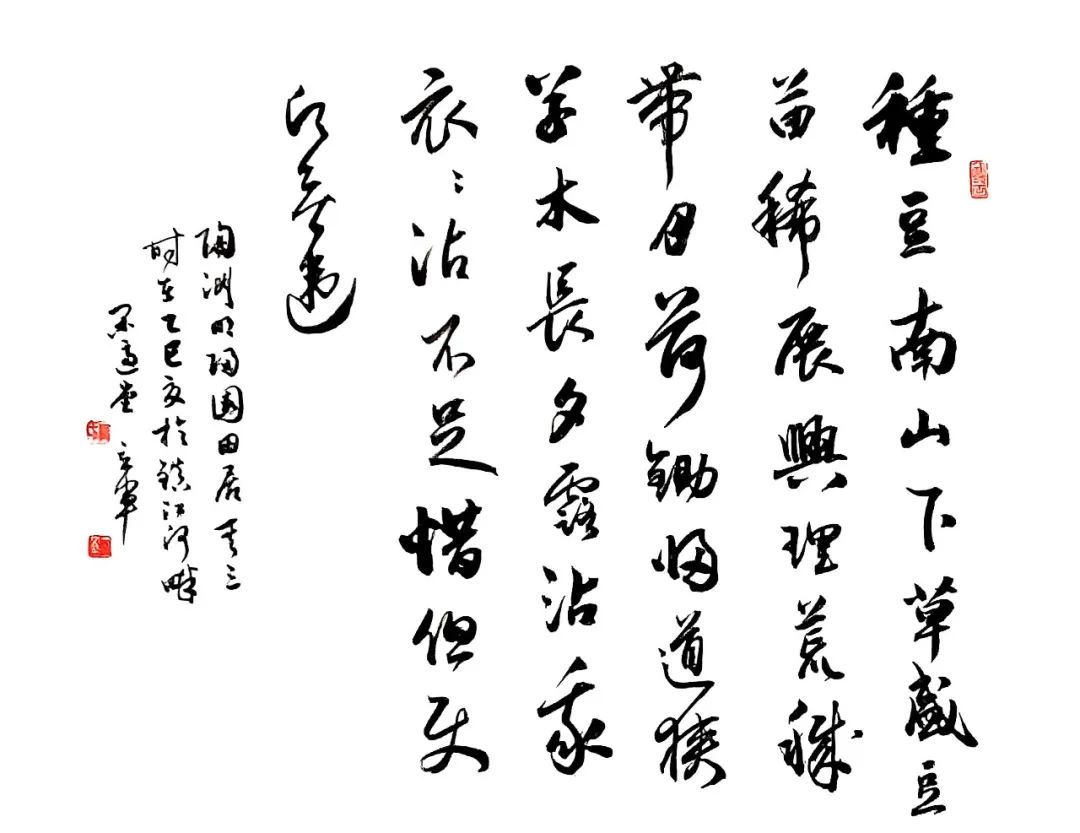 種豆南山下草盛豆
苗稀展興理荒穢
帶月荷鋤歸道狹
草木長夕露沾我
衣〻沾不足惜但使
願無違
陶渊明歸園田居其三
时在乙巳夏於鎮江河畔